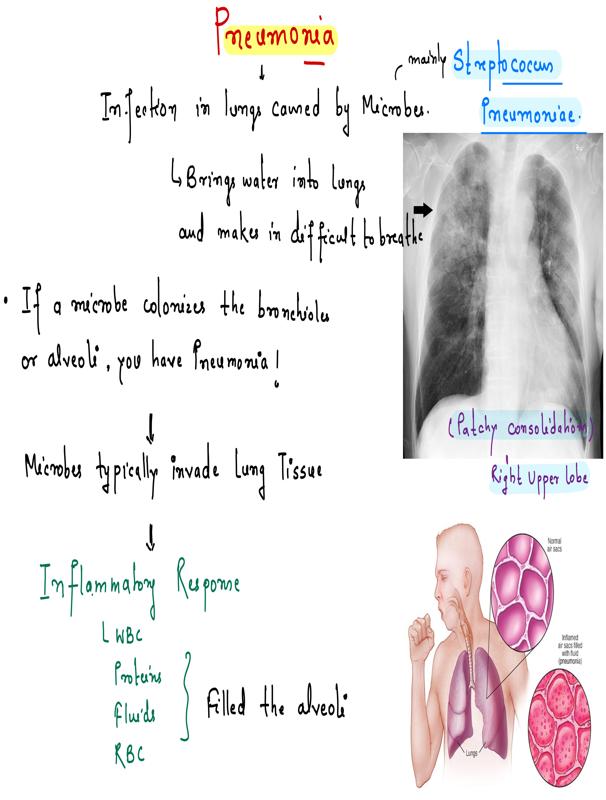 Pneumonia
mainly Streptococcus
Pneumoniae.
Infection in lungs caused by Microbes.
↳ Brings water into Lungs
and makes in difficult to breathe
• If a microbe colonizes the bronchioles
or alveoli, you have Pneumonia!
(Patchy consolidation)
Right Upper lobe
Microbes typically invade Lung Tissue
Inflammatory Response
WBC
Proteins
Fluids
RBC
Filled the alveoli
Normal
air sacs
Inflamed
air sacs filled
with fluid
(pneumonia)
Lungs